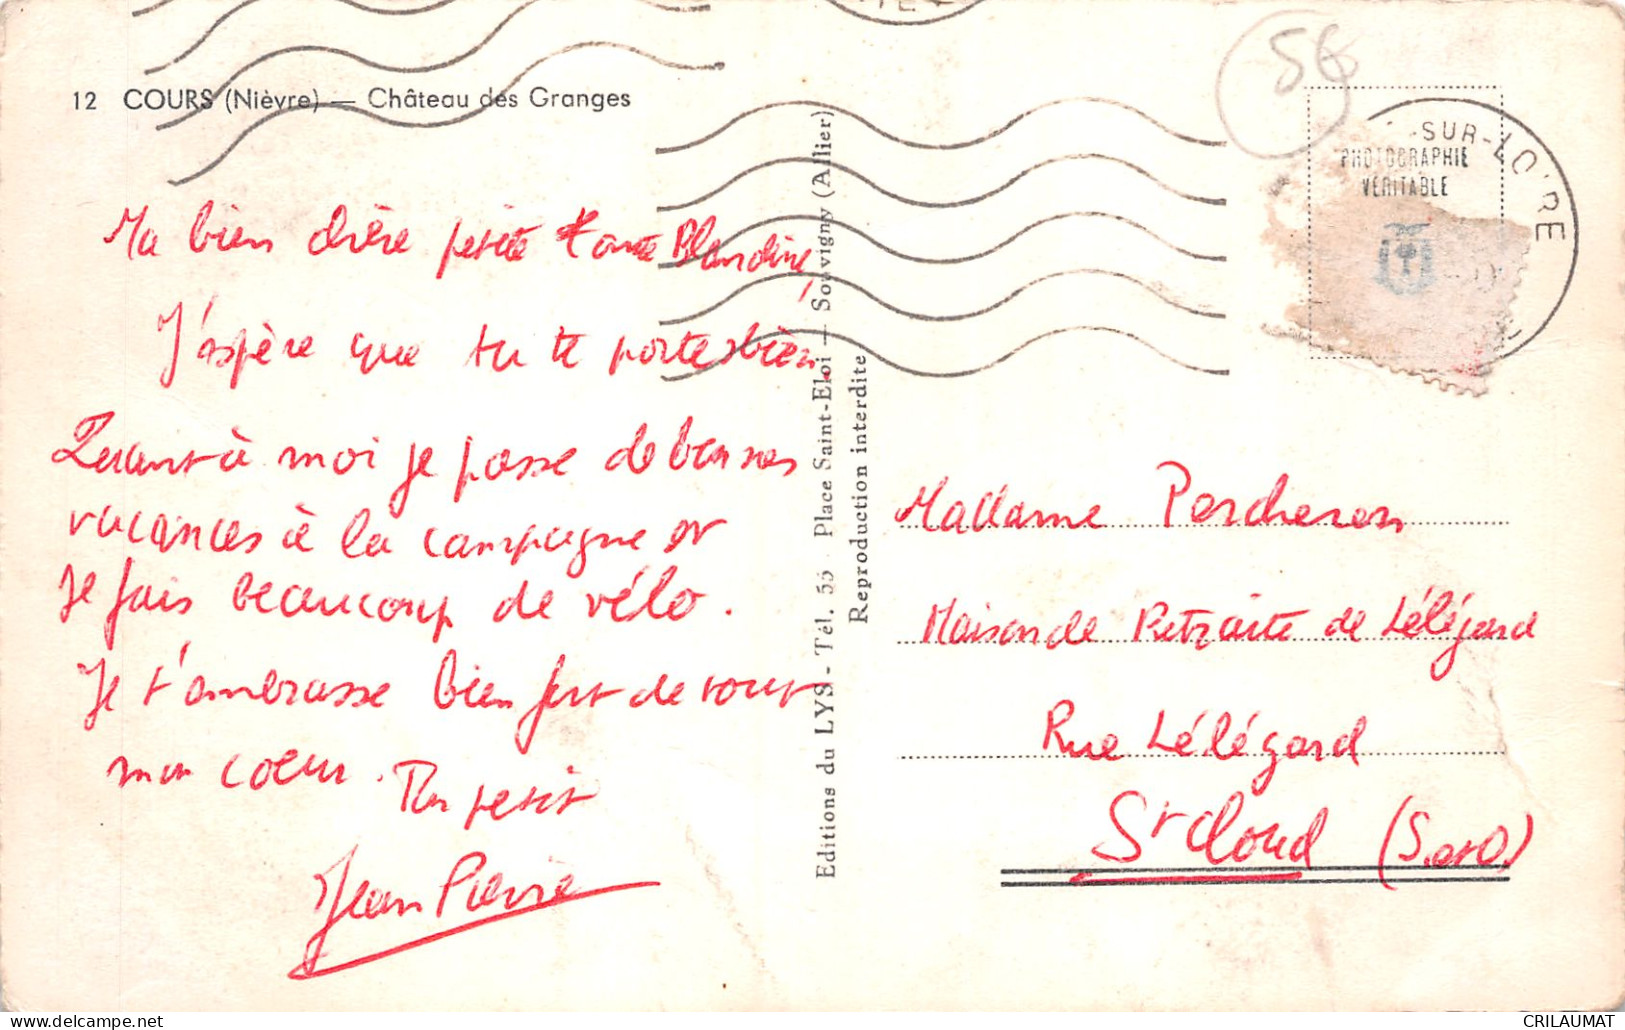 12 COURS (Nièvre) — Château des Granges
Ma bien chère petite tante Blandine
J'espère que tu te portes bien.
Quant à moi je passe de bonnes
vacances à la campagne et
je fais beaucoup de vélo.
Je t'embrasse bien fort de tout
mon coeur. Ton petit
Jean Pierre
Editions du LYS - Tél. 55 Place Saint-Eloi — Souvigny (Allier)
Reproduction interdite
56
-SUR-LOIRE
PHOTOGRAPHIE
VÉRITABLE
Madame Percheron
Maison de Retraite de Lélégard
Rue Lélégard
St Cloud (S.et O.)
CRILAUMAT